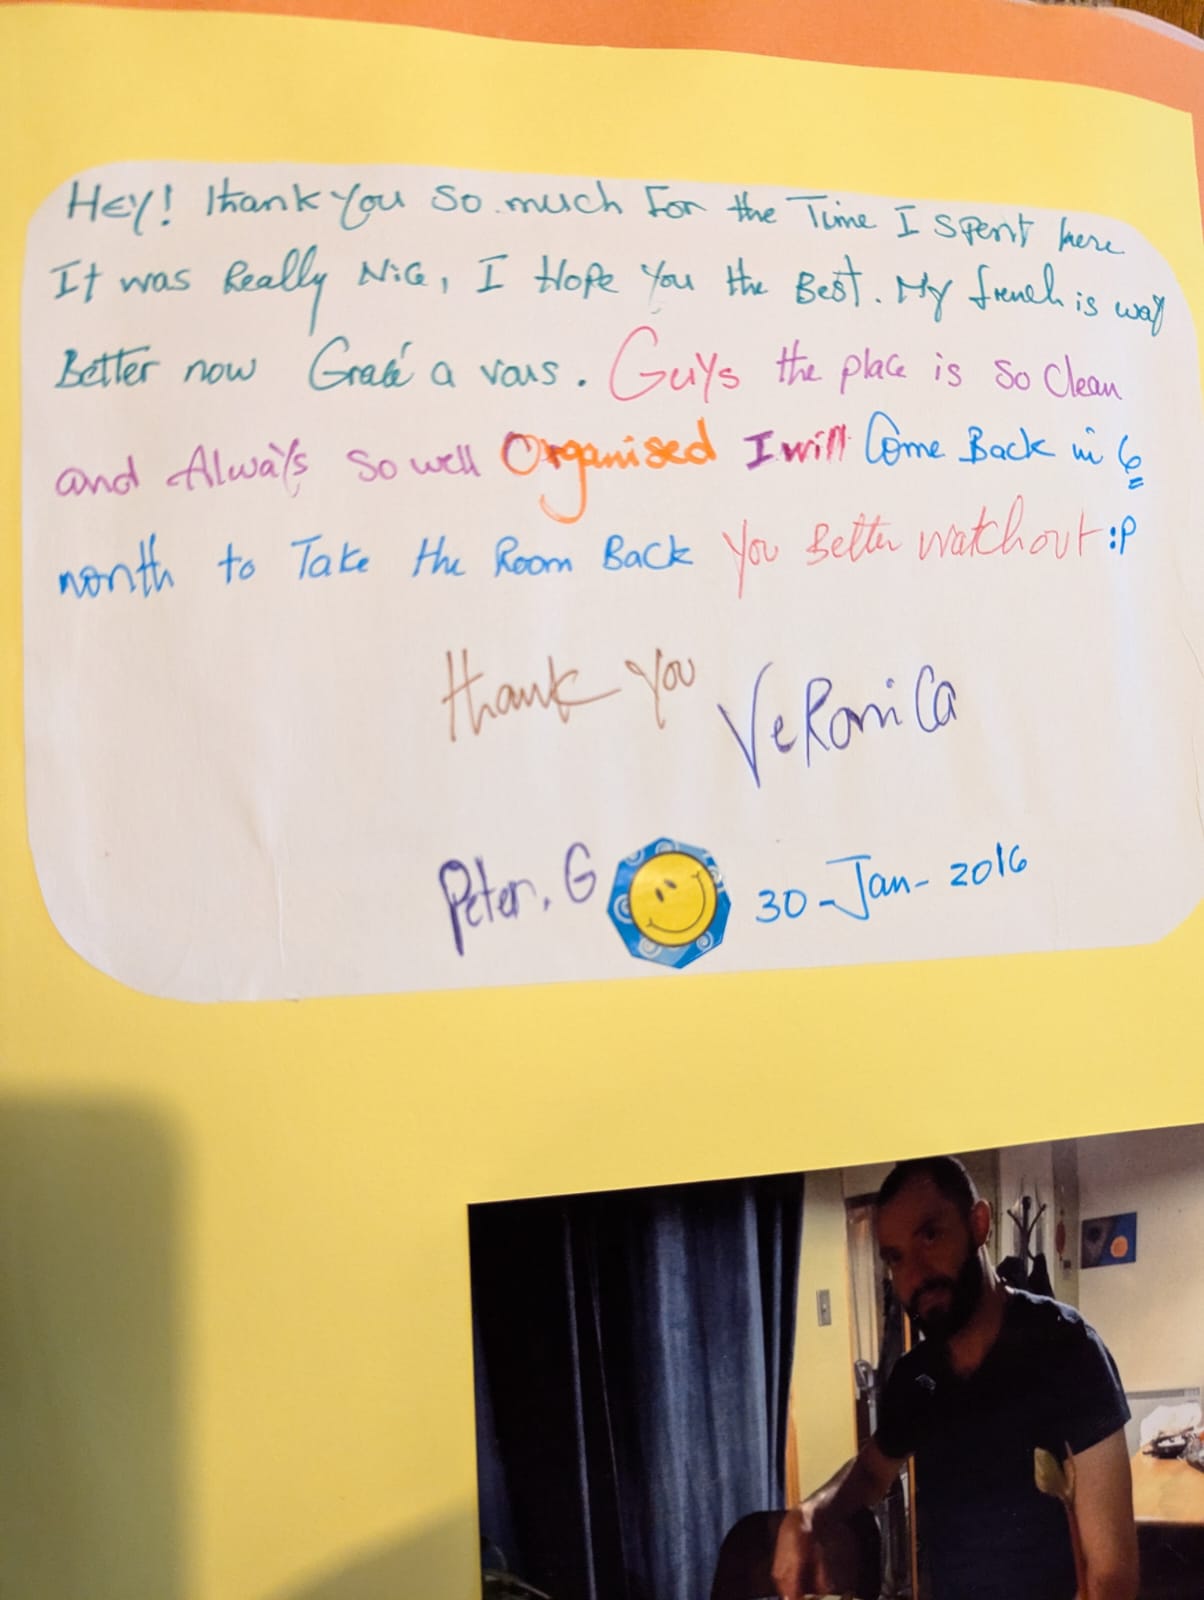 Hey! Thank You So much For the Time I Spent here
It was Really Nice, I Hope You the Best. My french is way
Better now Gracé a vous. Guys the place is So Clean
and Always So well Organised I will Come Back in 6
month to Take the Room Back You Better watch out :P
thank you Veronica
Peter. G 30-Jan-2016